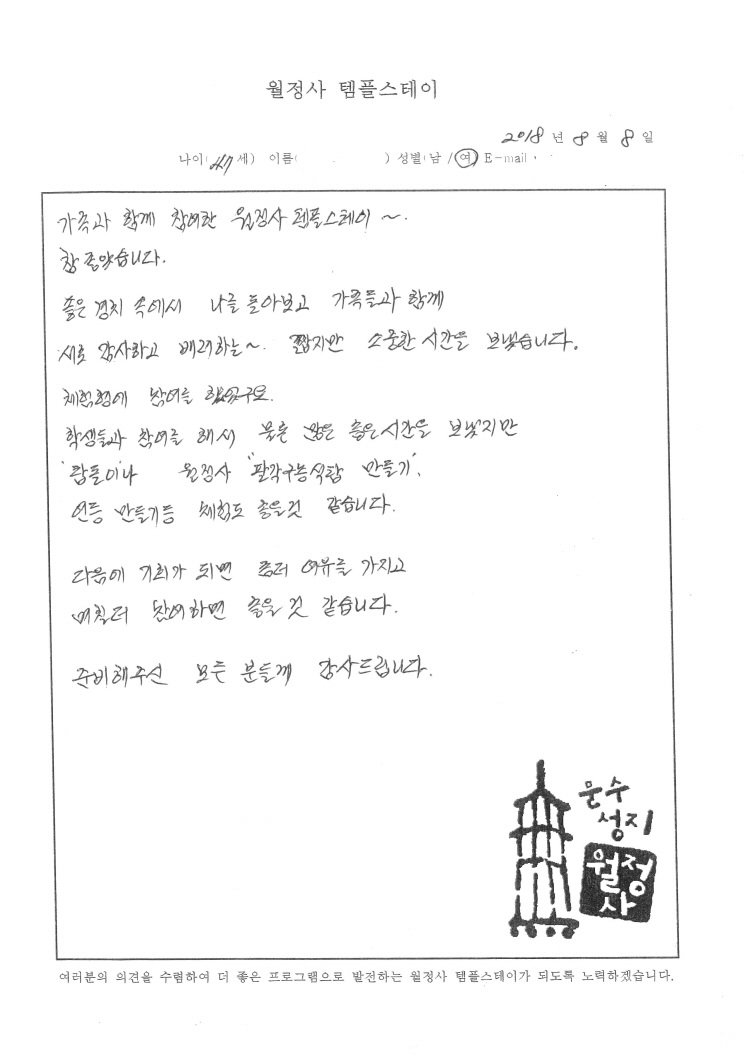 월정사 템플스테이
2018 년 8 월 8 일
나이( 47 세) 이름( ) 성별(남 / 여) E-mail :
가족과 함께 참여한 월정사 템플스테이 ~.
참 좋았습니다.
좋은 경치 속에서 나를 돌아보고 가족들과 함께
서로 감사하고 배려하는~. 짧지만 소중한 시간을 보냈습니다.
체험형에 참여를 했었구요.
학생들과 참여를 해서 물론 많은 좋은시간을 보냈지만
탑돌이나 월정사 "팔각구층석탑 만들기",
연등 만들기등 체험도 좋을것 같습니다.
다음에 기회가 되면 좀더 여유를 가지고
며칠더 참여하면 좋을것 같습니다.
준비해주신 모든 분들께 감사드립니다.
문수
성지
월정
사
여러분의 의견을 수렴하여 더 좋은 프로그램으로 발전하는 월정사 템플스테이가 되도록 노력하겠습니다.